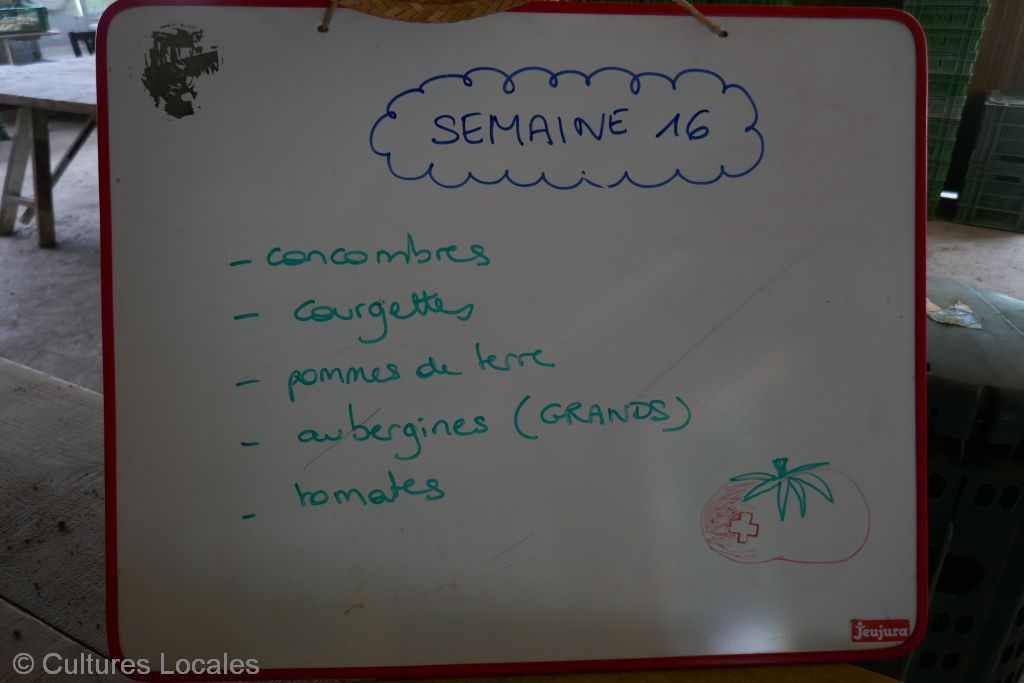 SEMAINE 16
- concombres
- courgettes
- pommes de terre
- aubergines (GRANDS)
- tomates
Jeujura
© Cultures Locales